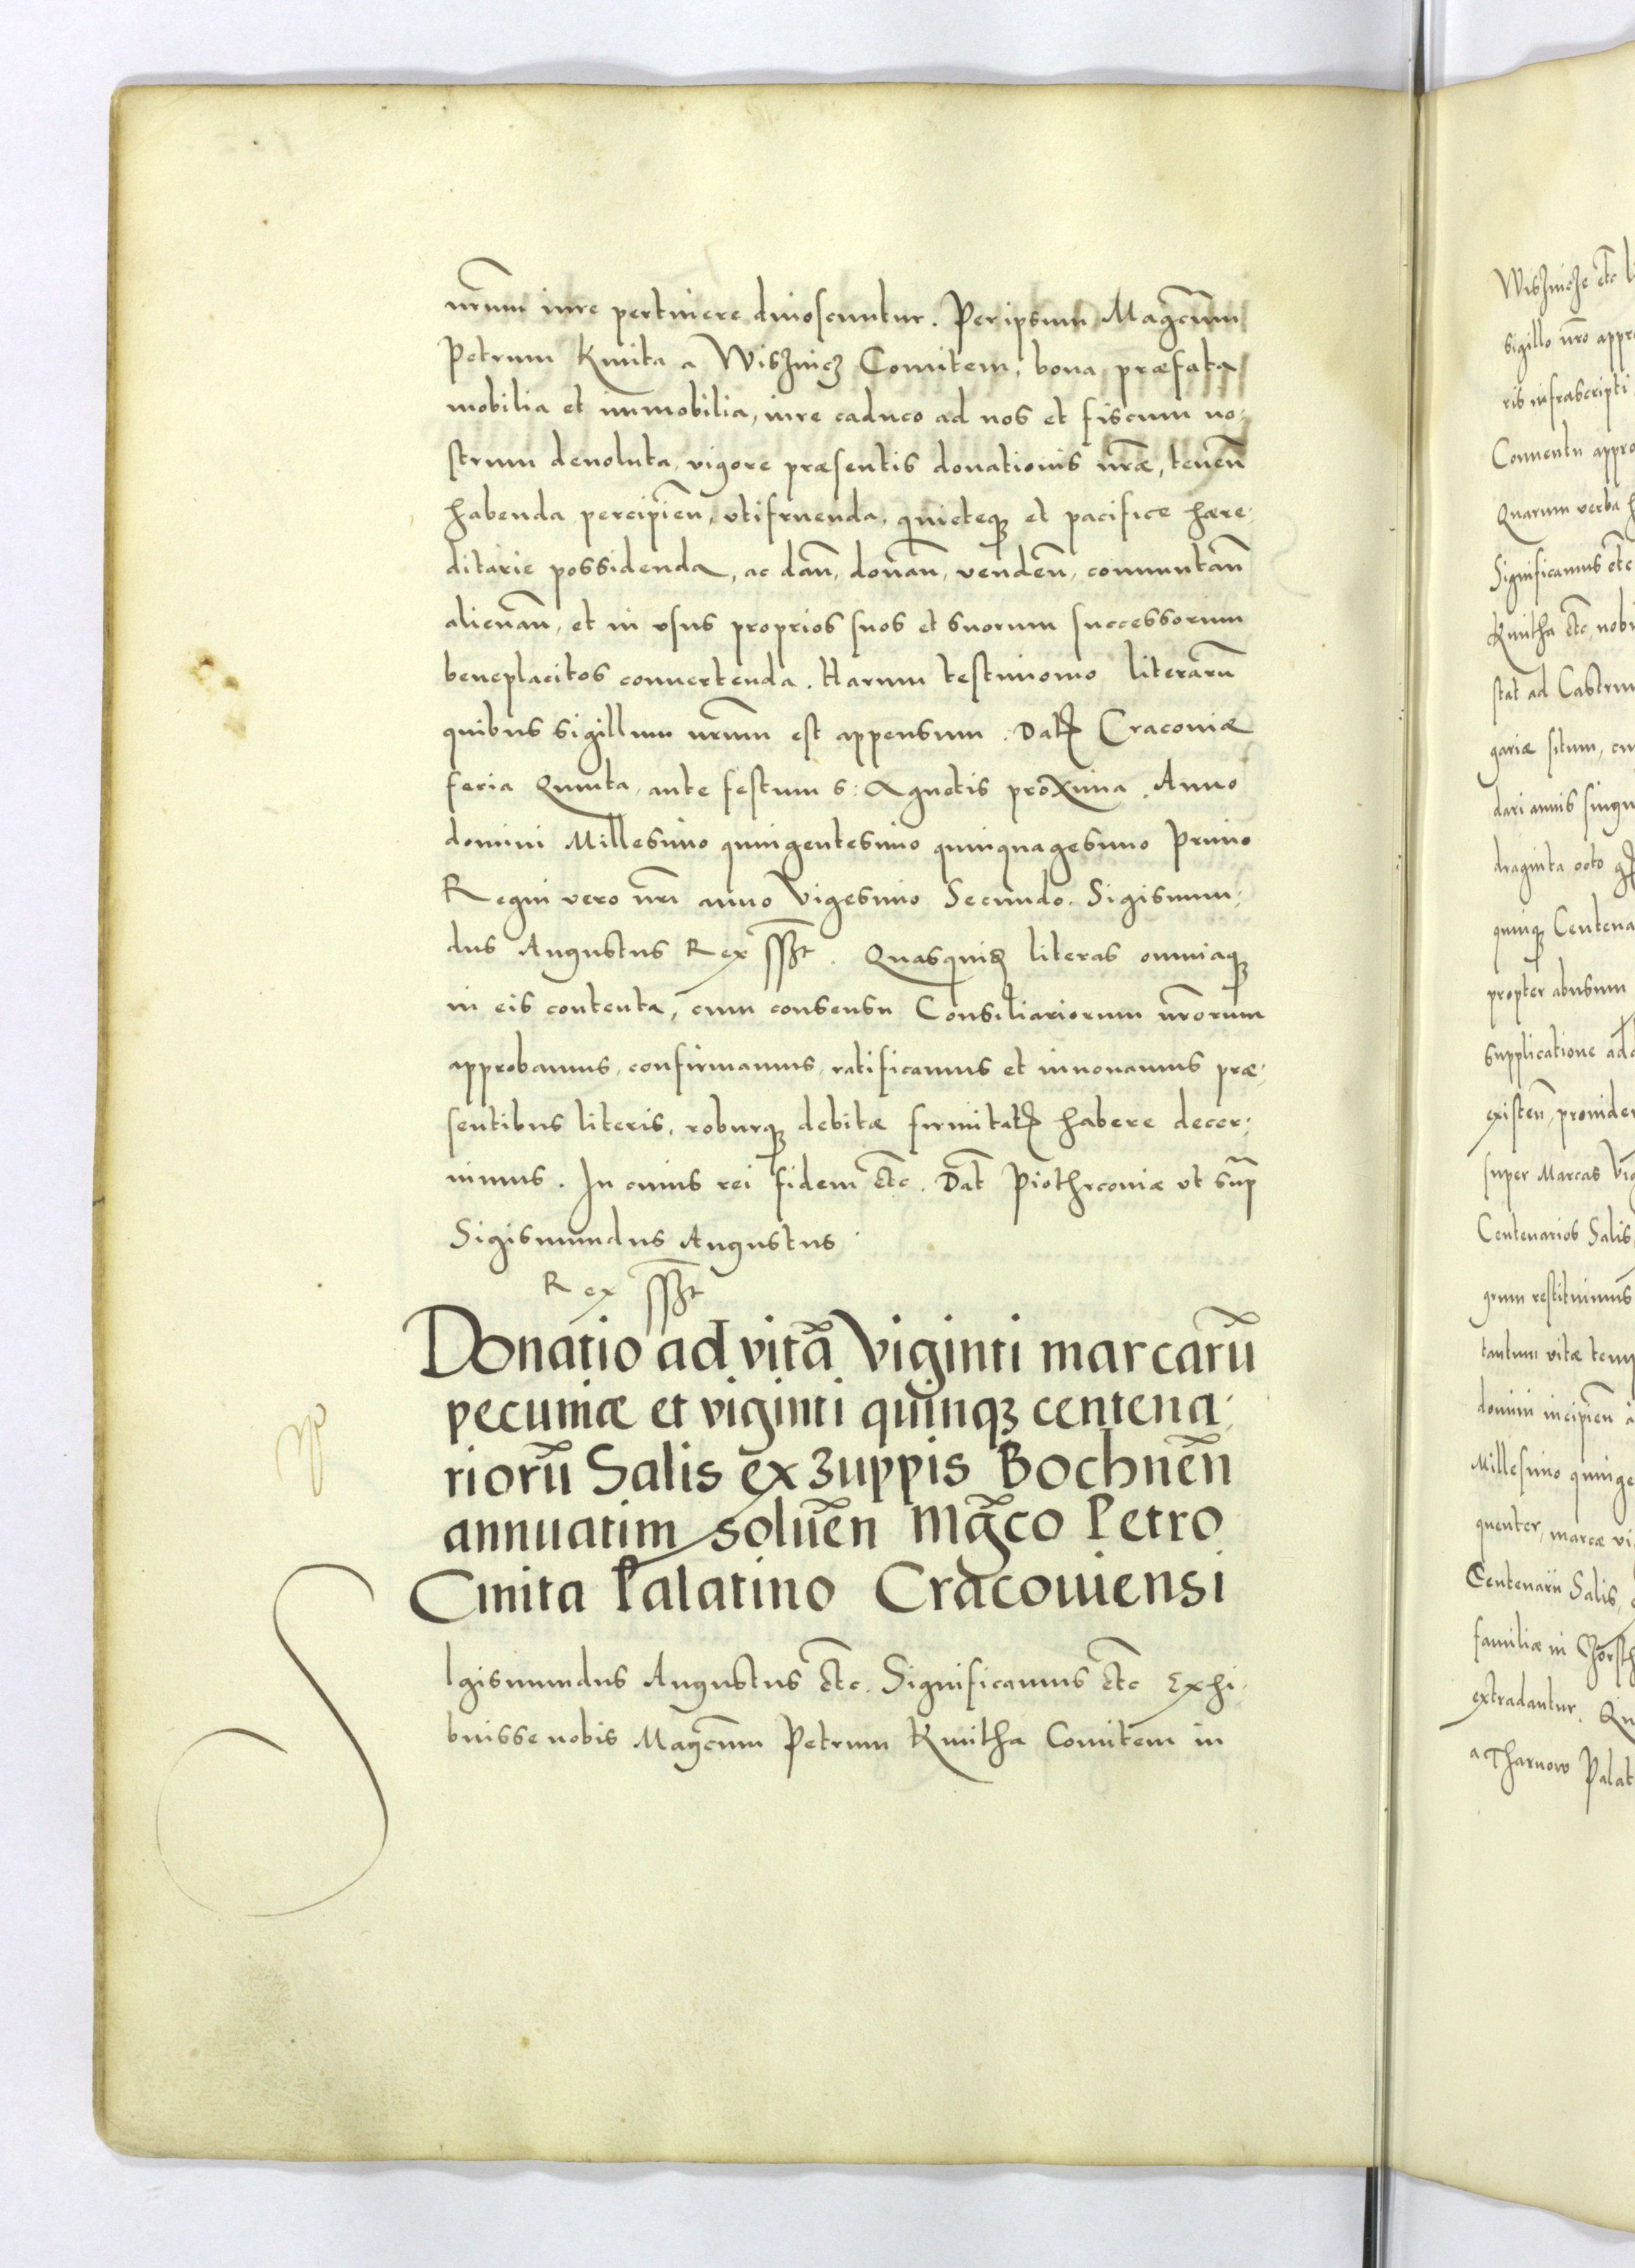 nr̃um iure pertinere dinoscuntur. Per ipsum Magcũm
Petrum Kmita a Wisznicz Comitem, bona præfata
mobilia et immobilia, iure caduco ad nos et fiscum no-
strum deuoluta, vigore præsentis donationis nr̃æ, teneñ
habenda percipieñ, vtifruenda, quieteqꝫ et pacifice hære-
ditarie possidenda, ac dañ, donañ, vendeñ, commutañ
alienañ, et in vsus proprios suos et suorum successorum
beneplacitos conuertenda. Harum testimonio literarũ
quibus sigillum nr̃um est appensum. Datꝫ Cracouiæ
feria Quinta, ante festum S: Agnetis proxima. Anno
domini Millesimo quingentesimo quinquagesimo Primo
Regni vero nr̃i anno Vigesimo Secundo. Sigismun-
dus Augustus Rex sszt. Quasquidꝫ literas omniaqꝫ
in eis contenta, cum consensu Consiliariorum nr̃orum
approbamus, confirmamus, ratificamus et innouamus præ-
sentibus literis, roburqꝫ debitæ firmitatꝫ habere decer-
nimus. In cuius rei fidem etc̃. Dat̃ Piothrcouiæ vt sup̃
Sigismundus Augustus
Rex sszt
Donatio ad vitã Viginti marcarũ
pecuniæ et viginti quinqꝫ centena-
riorũ Salis ex zuppis Bochneñ
annuatim solueñ Mgc̃o Petro
Cmita Palatino Cracouiensi
SIgismundus Augustus etc̃. Significamus etc̃ Exhi-
buisse nobis Magcũm Petrum Kmitha Comitem in
Wisznicze etc̃
sigillo nr̃o
ris infrascripti
Conuentu
Quarum verba
Significamus etc̃
Kmitha etc̃, nobi
stat ad Castrum
gariæ situm, cu
dari annis singu
draginta octo
quinqꝫ Centena
propter abusum
supplicatione
existeñ, prouiden
super Marcas
Centenarios Salis,
grum restituimus
tantum vitæ temp
domini incipieñ
Millesimo quinge
quenter, marcæ vi
Centenarii Salis,
familiæ in
extradantur. Qu
a Tharnow Palat